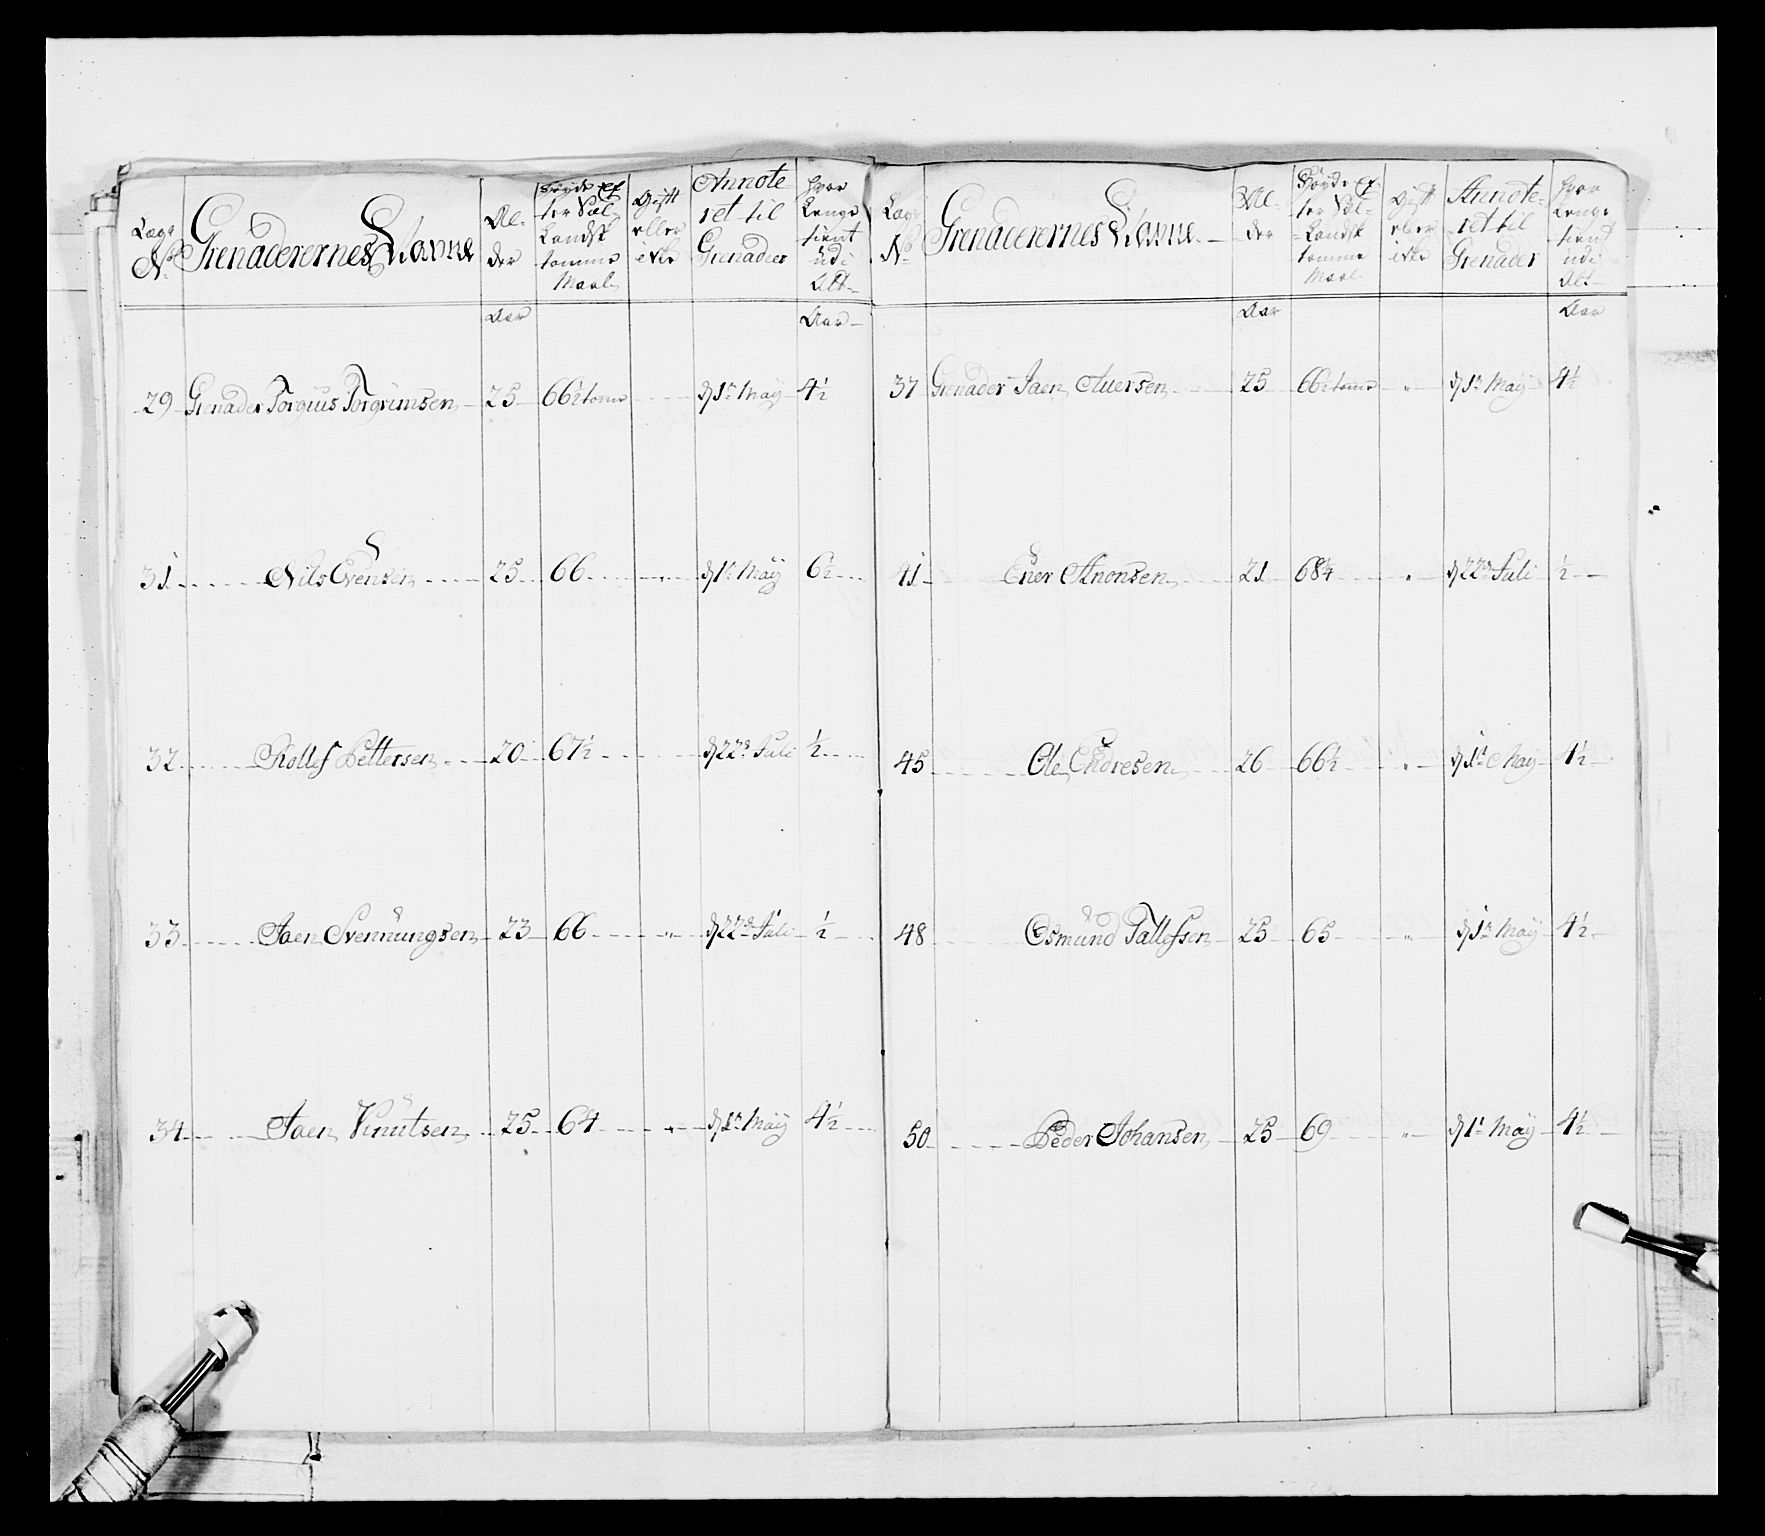 Lægs No Grenaderernes Navne Alder Høyde efter Sæl. Landsk tomme Maal Gift eller ikke Annoteret til Grenader Hvor Lenge tient udi Alt
Aar Aar
29 Grenader Torgius Torgrimsen 25 66½ tomr d 1t May 4½
31 Nils Evensen 25 66 " d 1t May 6½
32 Rollef Pettersen 20 67½ d 22d Juli ½
33 Jaen Svennungsen 23 66 " d 22d Juli ½
34 Jaen Knutsen 25 64 " d 1t May 4½
Lægs No Grenaderernes Navne Alder Høyde efter Sæl. Landsk tomme Maal Gift eller ikke Annoteret til Grenader Hvor Lenge tient udi Alt
Aar Aar
37 Grenader Jaen Auersen 25 66½ tomr " d 1t May 4½
41 Ener Anonsen 21 684 " d 22d Juli ½
45 Ole Endresen 26 66½ " d 1t May 4½
48 Osmund Tallefsen 25 65 " d 1t May 4½
50 Peder Johansen 25 69 " d 1t May 4½